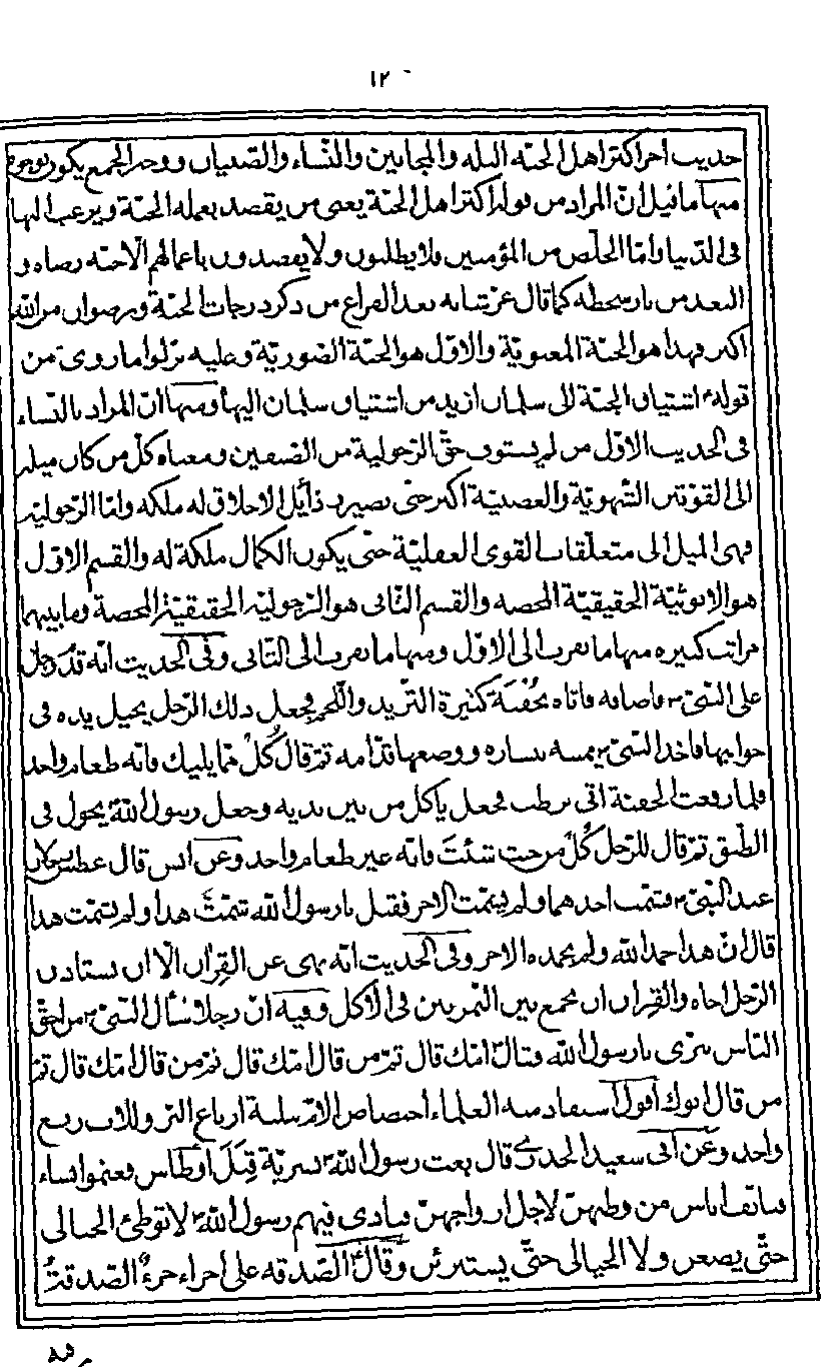 ١٢
حديث آخر اكثر اهل الجنة البله والمجانين والنساء والصبيان ووجه الجمع يكون بوجوه
منها ما قيل ان المراد من قوله اكثر اهل الجنة يعنى من يقصد بعمله الجنة ويرغب اليها
فى الدنيا وامّا الخلّص من المؤمنين فلا يطلبون ولا يقصدون باعمالهم الّا جنة رضاه و
البعد من نار سخطه كما قال عز شانه بعد الفراغ من ذكر درجات الجنة ورضوان من الله
اكبر فهذا هو الجنة المعنوية والاوّل هو الجنة الصورية وعليه نزلوا ما روى من
قوله ع اشتياق الجنة الى سلمان ازيد من اشتياق سلمان اليها ومنها ان المراد بالنساء
فى الحديث الاوّل من لم يستوف حقّ الرجولية من الصنفين ومعناه كل من كان ميله
الى القوتين الشهوية والغضبية اكثر حتى يصير رذائل الاخلاق له ملكه وامّا الرجولية
فهى الميل الى متعلقات القوى العقلية حتى يكون الكمال ملكة له والقسم الاوّل
هو الانوثية الحقيقية المحضه والقسم الثانى هو الرجولية الحقيقية المحضة وما بينهما
مراتب كثيره منها ما يقرب الى الاوّل ومنها ما يقرب الى الثانى وفى الحديث انه قدم رجل
على النبىّ ص فاصافه فاتاه بجفنة كثيرة الثريد واللحم فجعل ذلك الرجل يجيل يده فى
جوانبها فاخذ النبىّ ص يمينه بيساره ووضعها قدّامه ثم قال كُلْ ممّا يليك فانه طعام واحد
فلما رفعت الجفنة اتى برطب فجعل ياكل من بين يديه وجعل رسول الله ص يجول فى
الطبق ثم قال للرجل كُلْ من حيث شئتَ فانه غير طعام واحد وعن انس قال عطس رجلان
عند النبىّ ص فشمّت احدهما ولم يشمّت الاخر فقيل يا رسول الله شمّتَّ هذا ولم تشمّت هذا
قال انّ هذا حمد الله ولم يحمده الاخر وفى الحديث انه نهى عن القِران الّا ان يستاذن
الرجل اخاه والقِران ان يجمع بين التمرتين فى الاكل وفيه انّ رجلا سأل النبىّ ص من احقّ
الناس ببرّى يا رسول الله فقال امّك قال ثم من قال امّك قال ثم من قال امّك قال ثم
من قال ابوك اقول استفاد منه العلماء اختصاص الام بثلثة ارباع البر وللاب ربع
واحد وعن ابى سعيد الخدرى قال بعث رسول الله ص سرية قِبَلَ اوطاس فغنموا نساء
فتأنّف اناس من وطيهنّ لاجل ازواجهنّ فنادى فيهم رسول الله ص لا توطئ الحبالى
حتّى يضعن ولا الحيالى حتّى يستبرئن وقال ع الصدقه على اجراء جرء الصدقة